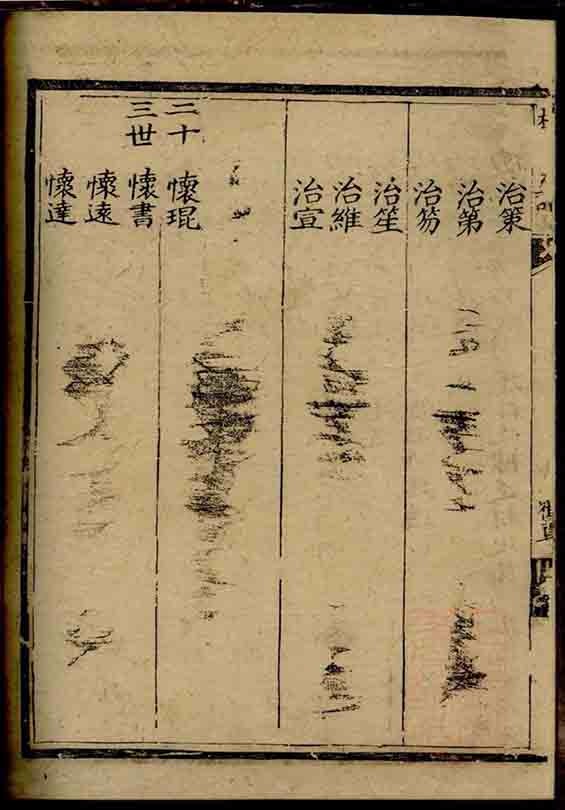 治策
治第
治笏
治笙
治維
治宣
二十 懷琨
三世 懷書
懷遠
懷達